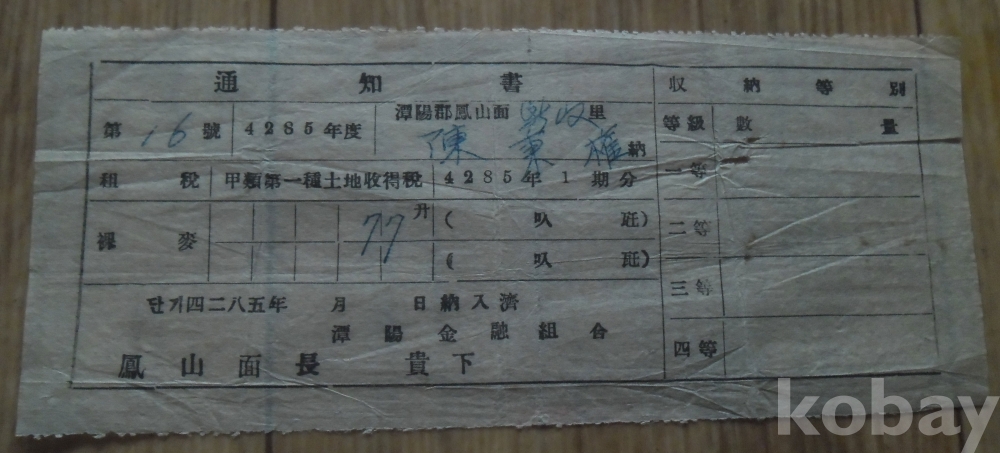 通知書
第16號 4285年度 潭陽郡鳳山面 收里
陳東 納
租稅 甲類第一種土地收得稅 4285年1期分
裸麥 77升 ( 叺 瓩)
( 叺 瓩)
단기四二八五年 月 日納入濟
潭陽金融組合
鳳山面長 貴下
収納等別
等級 數量
一等
二等
三等
四等
kobay